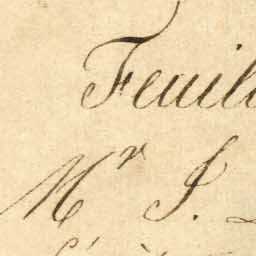 Feuil
Mr J.